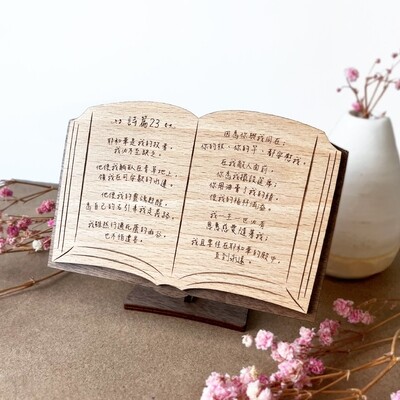 詩篇23
耶和華是我的牧者，
我必不至缺乏。
他使我躺臥在青草地上，
領我在可安歇的水邊。
他使我的靈魂甦醒，
為自己的名引導我走義路。
我雖然行過死蔭的幽谷，
也不怕遭害，
因為你與我同在；
你的杖，你的竿，都安慰我。
在我敵人面前，
你為我擺設筵席；
你用油膏了我的頭，
使我的福杯滿溢。
我一生一世必有
恩惠慈愛隨著我；
我且要住在耶和華的殿中，
直到永遠。